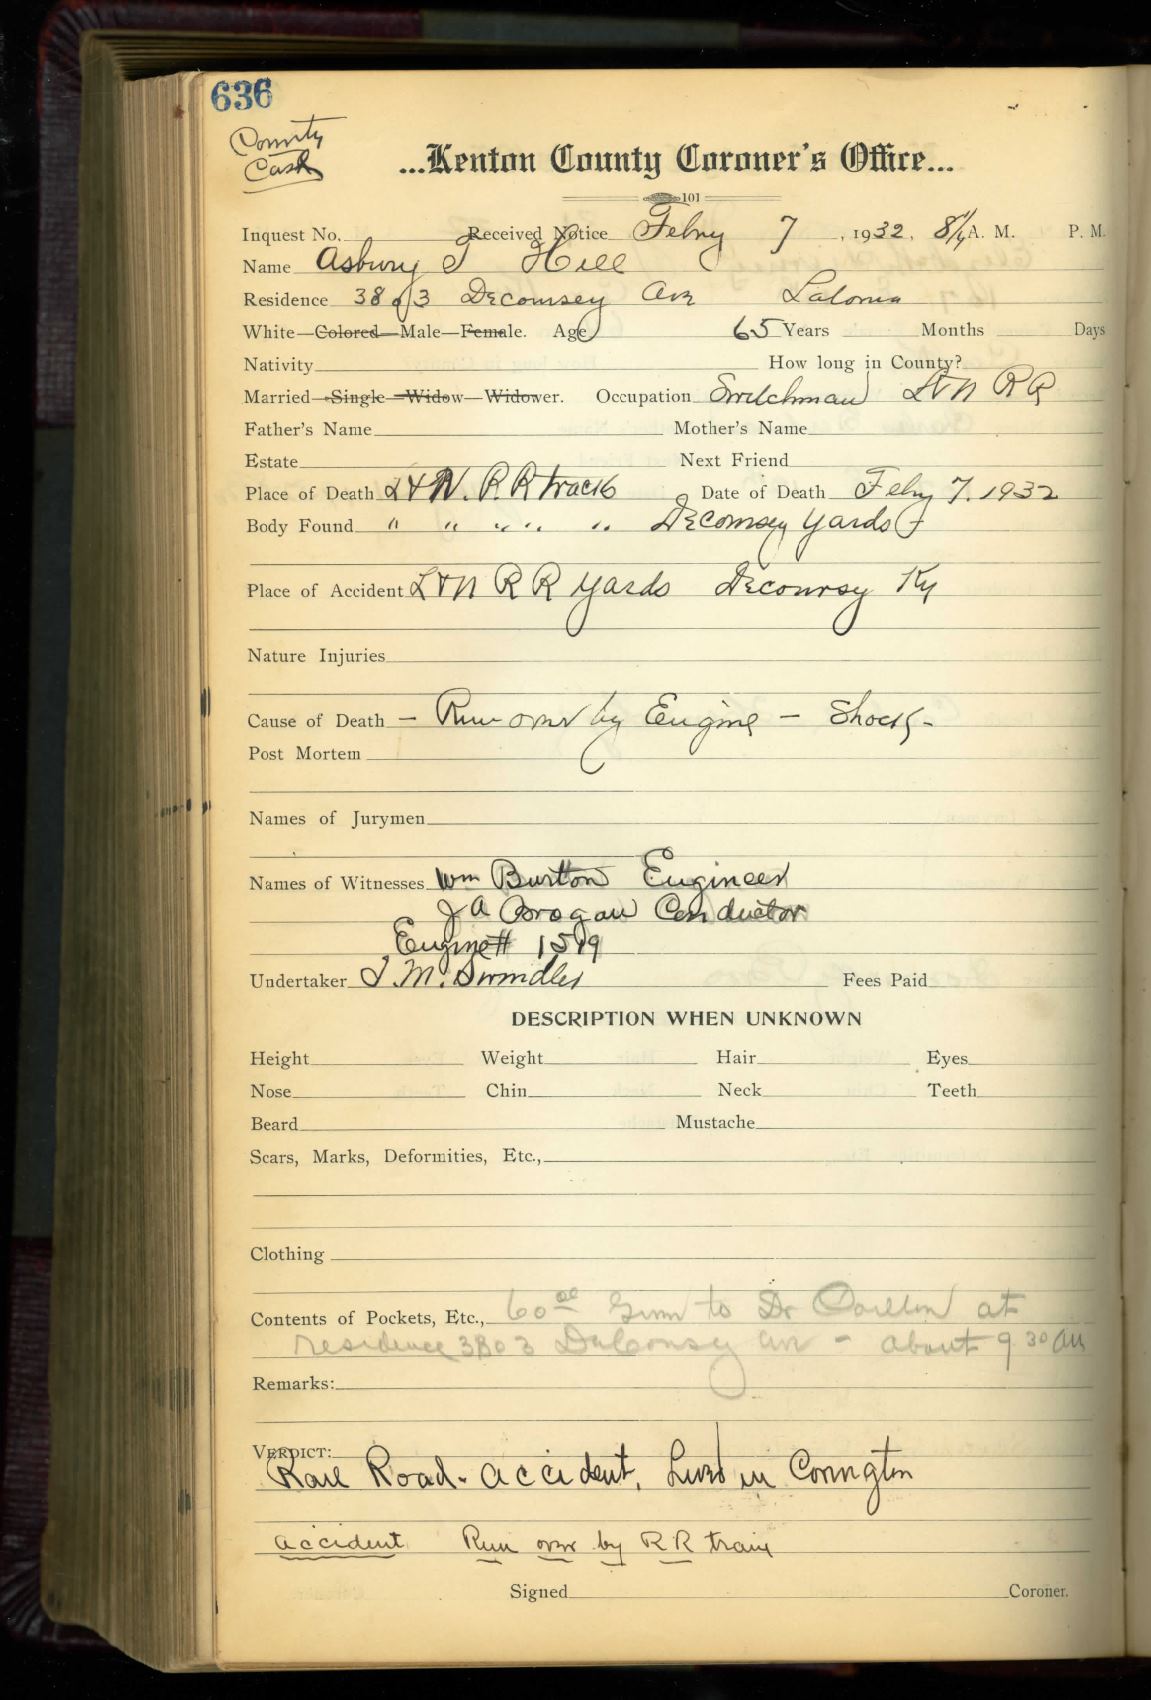 636
County
Cash
...Kenton County Coroner's Office...
101
Inquest No. Received Notice Febry 7, 1932, 8 1/4 A. M. P. M.
Name Asbury T Hill
Residence 3803 Decoursey Ave Latonia
White—Colored—Male—Female. Age 65 Years Months Days
Nativity How long in County?
Married—Single—Widow—Widower. Occupation Switchman L&N RR
Father's Name Mother's Name
Estate Next Friend
Place of Death L&N. RR track Date of Death Febry 7. 1932
Body Found " " " " " Decoursey Yards
Place of Accident L&N RR Yards Decoursy Ky
Nature Injuries
Cause of Death — Run over by Engine — Shock -
Post Mortem
Names of Jurymen
Names of Witnesses Wm Burton Engineer
J A Brogan Conductor
Engine # 1519
Undertaker Swindler Fees Paid
DESCRIPTION WHEN UNKNOWN
Height Weight Hair Eyes
Nose Chin Neck Teeth
Beard Mustache
Scars, Marks, Deformities, Etc.,
Clothing
Contents of Pockets, Etc., 60 00 to Dr at
residence 3803 DeCoursey Ave - about 9 30 AM
Remarks:
VERDICT:
Rail Road - accident, Lived in Covington
accident Run over by RR train
Signed Coroner.